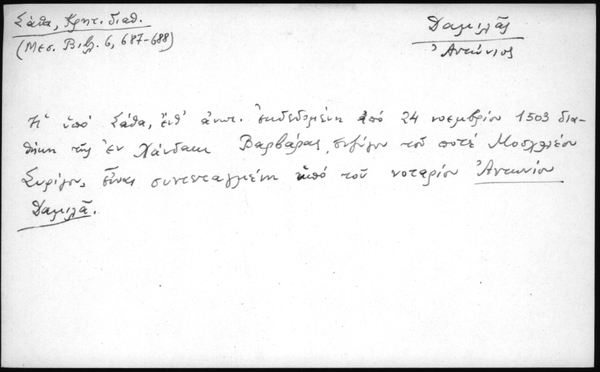 Σάθα, Κρητ. διαθ.
(Μεσ. Βιβλ. 6, 687-688)
Δαμιλᾶς
Ἀντώνιος
Ἡ ὑπό Σάθα, ἔνθ' ἀνωτ. ἐκδεδομένη ἀπό 24 νοεμβρίου 1503 δια-
θήκη τῆς ἐν Χάνδακι Βαρβάρας, συζύγου τοῦ ποτέ
Συρίγου, εἶναι συντεταγμένη ὑπό τοῦ νοταρίου Ἀντωνίου
Δαμιλᾶ.